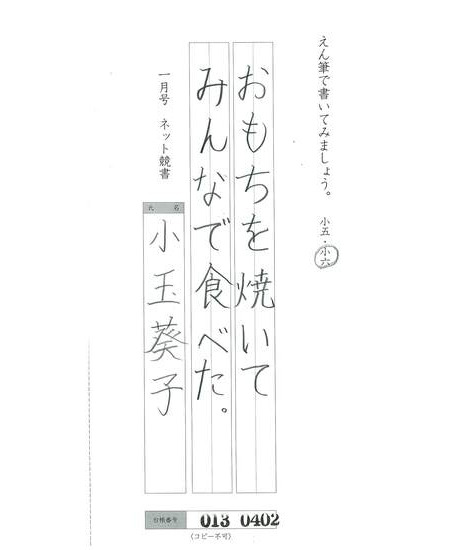 えん筆で書いてみましょう。
小五・小六
おもちを焼いて
みんなで食べた。
一月号 ネット競書
氏名
小玉葵子
台帳番号 013 0402
(コピー不可)